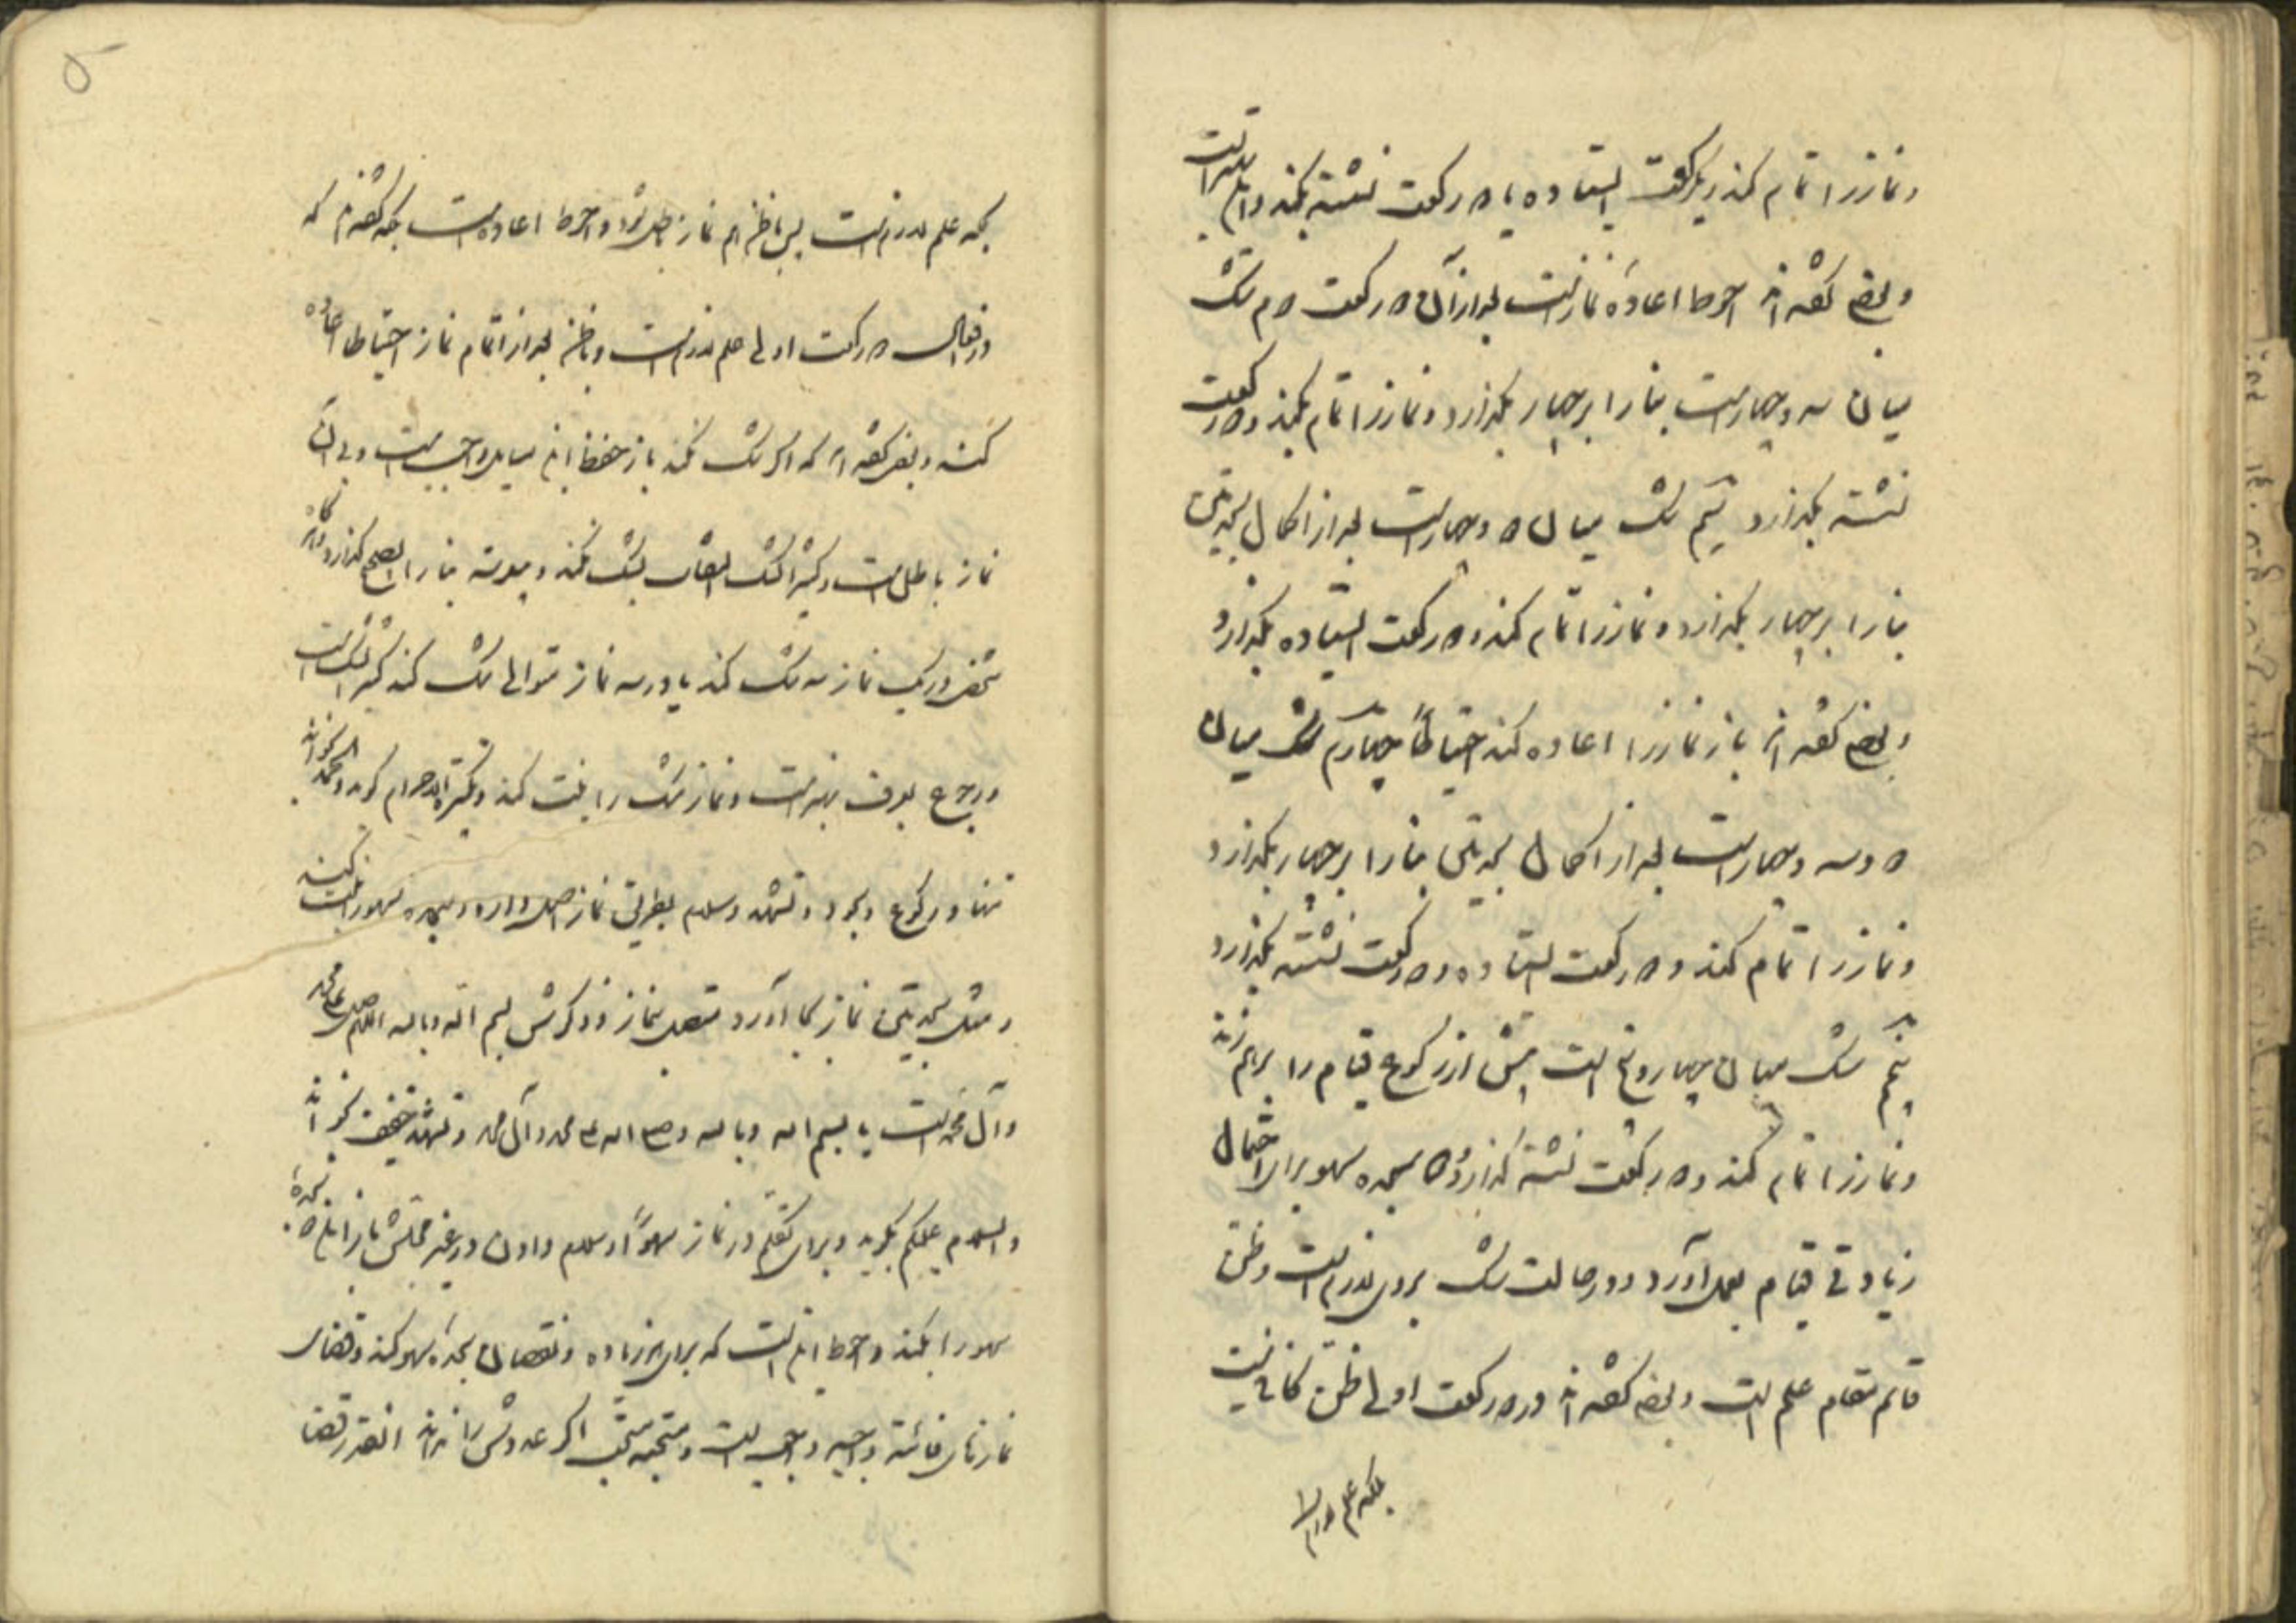 و نماز را تمام کند و یک رکعت ایستاده یا دو رکعت نشسته بکند و این بهتر است
و بعضی گفته‌اند احوط اعاده نماز است بعد از آن دو رکعت دوم شک
میان سه و چهار است بنا را بر چهار بگذارد و نماز را تمام بکند و دو رکعت
نشسته بگذارد سیم شک میان دو و چهار است بعد از اکمال سجدتین
بنا را بر چهار بگذارد و نماز را تمام کند و دو رکعت ایستاده بگذارد
و بعضی گفته‌اند باز نماز را اعاده کند احتیاطاً چهارم شک میان
دو و سه و چهار است بعد از اکمال سجدتین بنا را بر چهار بگذارد
و نماز را تمام کند و دو رکعت ایستاده و دو رکعت نشسته بگذارد
پنجم شک میان چهار و پنج است پیش از رکوع قیام را بر هم زند
و نماز را تمام کند و دو رکعت نشسته گذارد و دو سجده سهو برای احتمال
زیادتی قیام بعمل آورد و در حالت شک تروی لازم است و ظن
قائم مقام علم است و بعضی گفته‌اند در دو رکعت اولی ظن کافی نیست
بلکه علم لازم است
بلکه علم لازم است پس با ظن هم نماز باطل شود و احوط اعاده است بلکه گفته‌اند که
در افعال دو رکعت اولی علم لازم است و با ظن بعد از اتمام نماز احتیاطا اعاده
کند و بعضی گفته‌اند که اگر شک نکند باز حفظ این مسایل واجب است و بی آن
نماز باطل است و کثیر الشک التفات بشک نکند و پیوسته بنا را بصحیح گذارد و هر گاه
شخصی در یک نماز سه شک کند یا در سه نماز متوالی شک کند کثیر الشک است
و رجوع بعرف بهتر است و نماز شک را نیت کند و تکبیرة الاحرام گوید و الحمد بخواند
تنها و رکوع و سجود و تشهد و سلام بطریق نماز اصل دارد و سجده سهو را نیت کند
و مثل سجدتین نماز بجا آورد متصل بنماز و ذکرش بسم الله و بالله اللهم صل علی محمد
و آل محمد است یا بسم الله و بالله و صلی الله علی محمد و آل محمد و تشهد خفیف بخواند
و السلام علیکم بگوید و برای تکلم در نماز سهوًا و سلام دادن در غیر محلش باز این دو سجدهٔ
سهو را بکند و احوط این است که برای هر زیاده و نقصان سجده سهو کند و قضای
نمازهای فائته واجبه واجب است و مستحبه مستحب اگر عددش را نداند آنقدر قضا